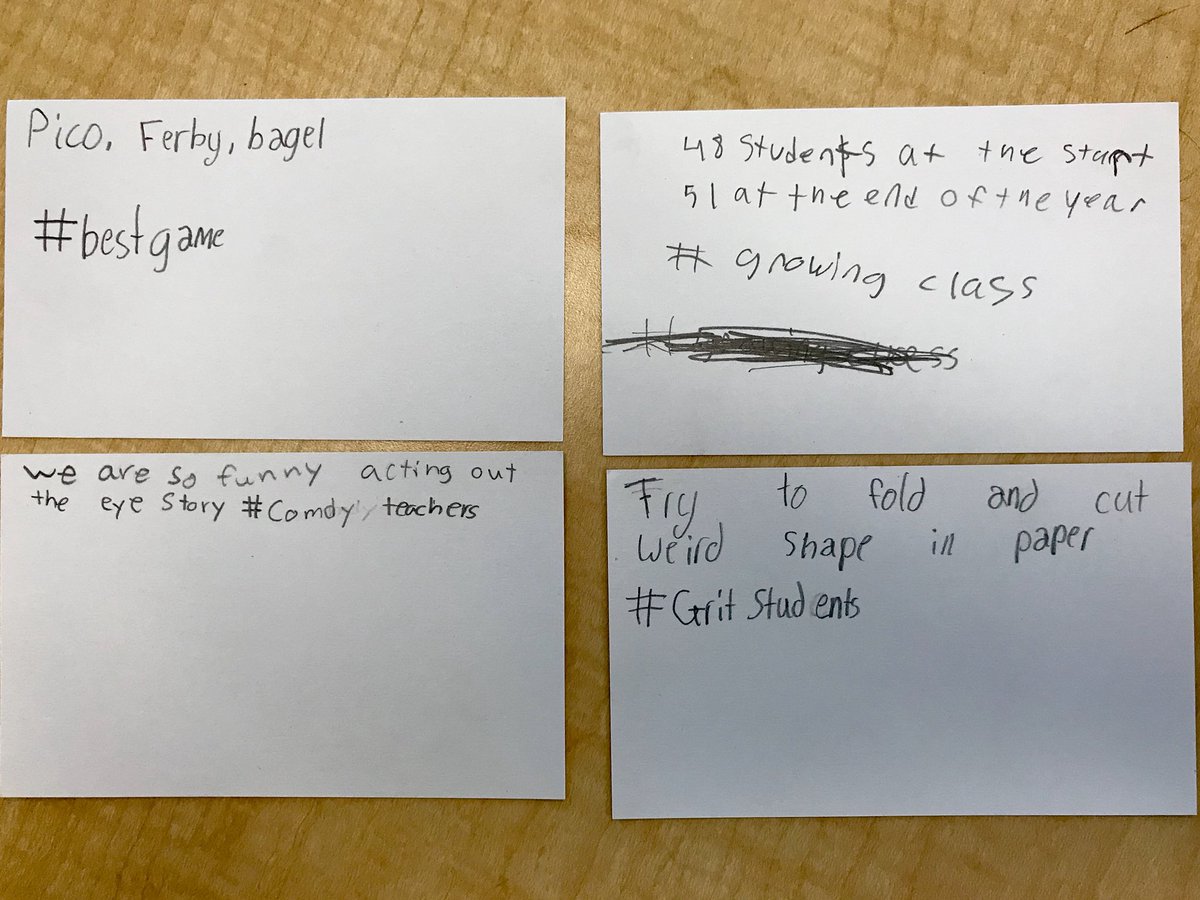 Pico, Ferby, bagel
#bestgame
48 Students at the start
51 at the end of the year
# growing class
we are so funny acting out
the eye Story #Comdy teachers
Try to fold and cut
weird shape in paper
#Grit Students